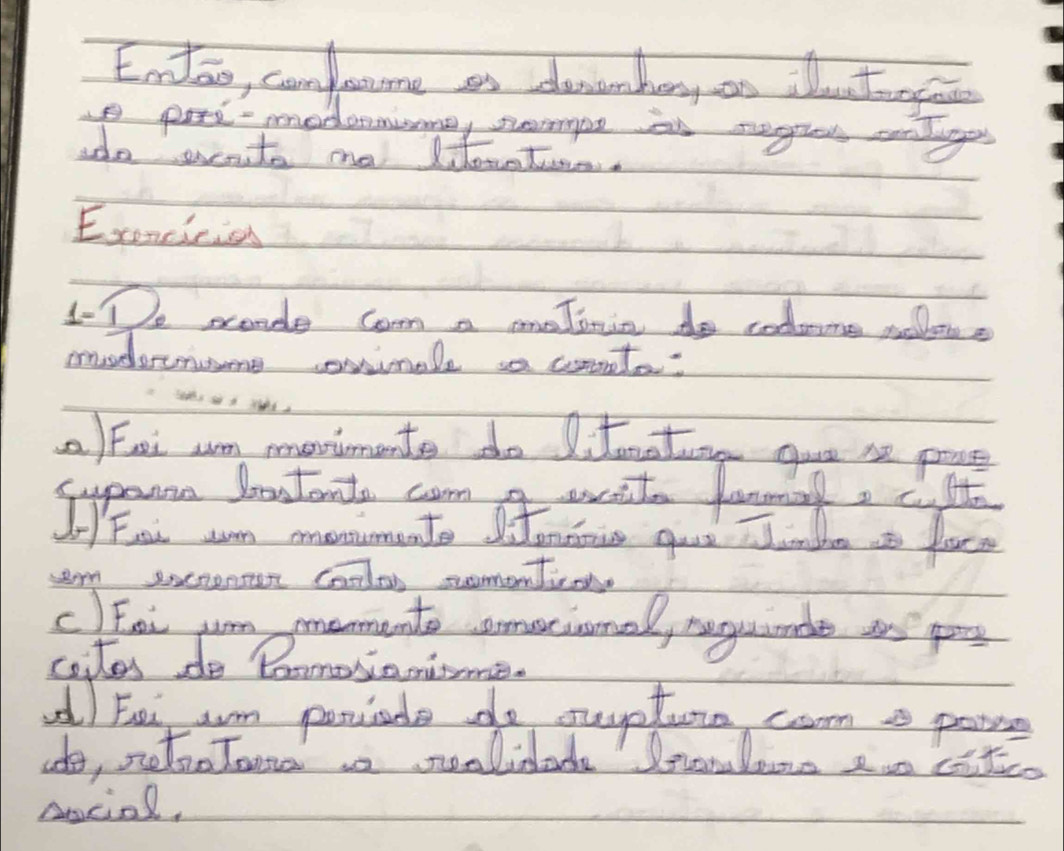 Então, conforme os desenhos, as ilustração
o pré-modernismo, rompe às regras antigas
da escrita na literatura.
Exercícios
1- De acordo com a matéria do caderno sobre o
modernismo assinale a correta:
a) Foi um movimento da literatura que se preo
cupava bastante com a escrita formal e culta.
b) Foi um movimento literário que tinha o foco
em escrever cartas romanticas.
c) Foi um momento emocional, seguindo os pre
ceitos do Parnasianismo.
d) Foi um período de ruptura com o passa
do, retratava a realidade brasileira e a crítica
social.